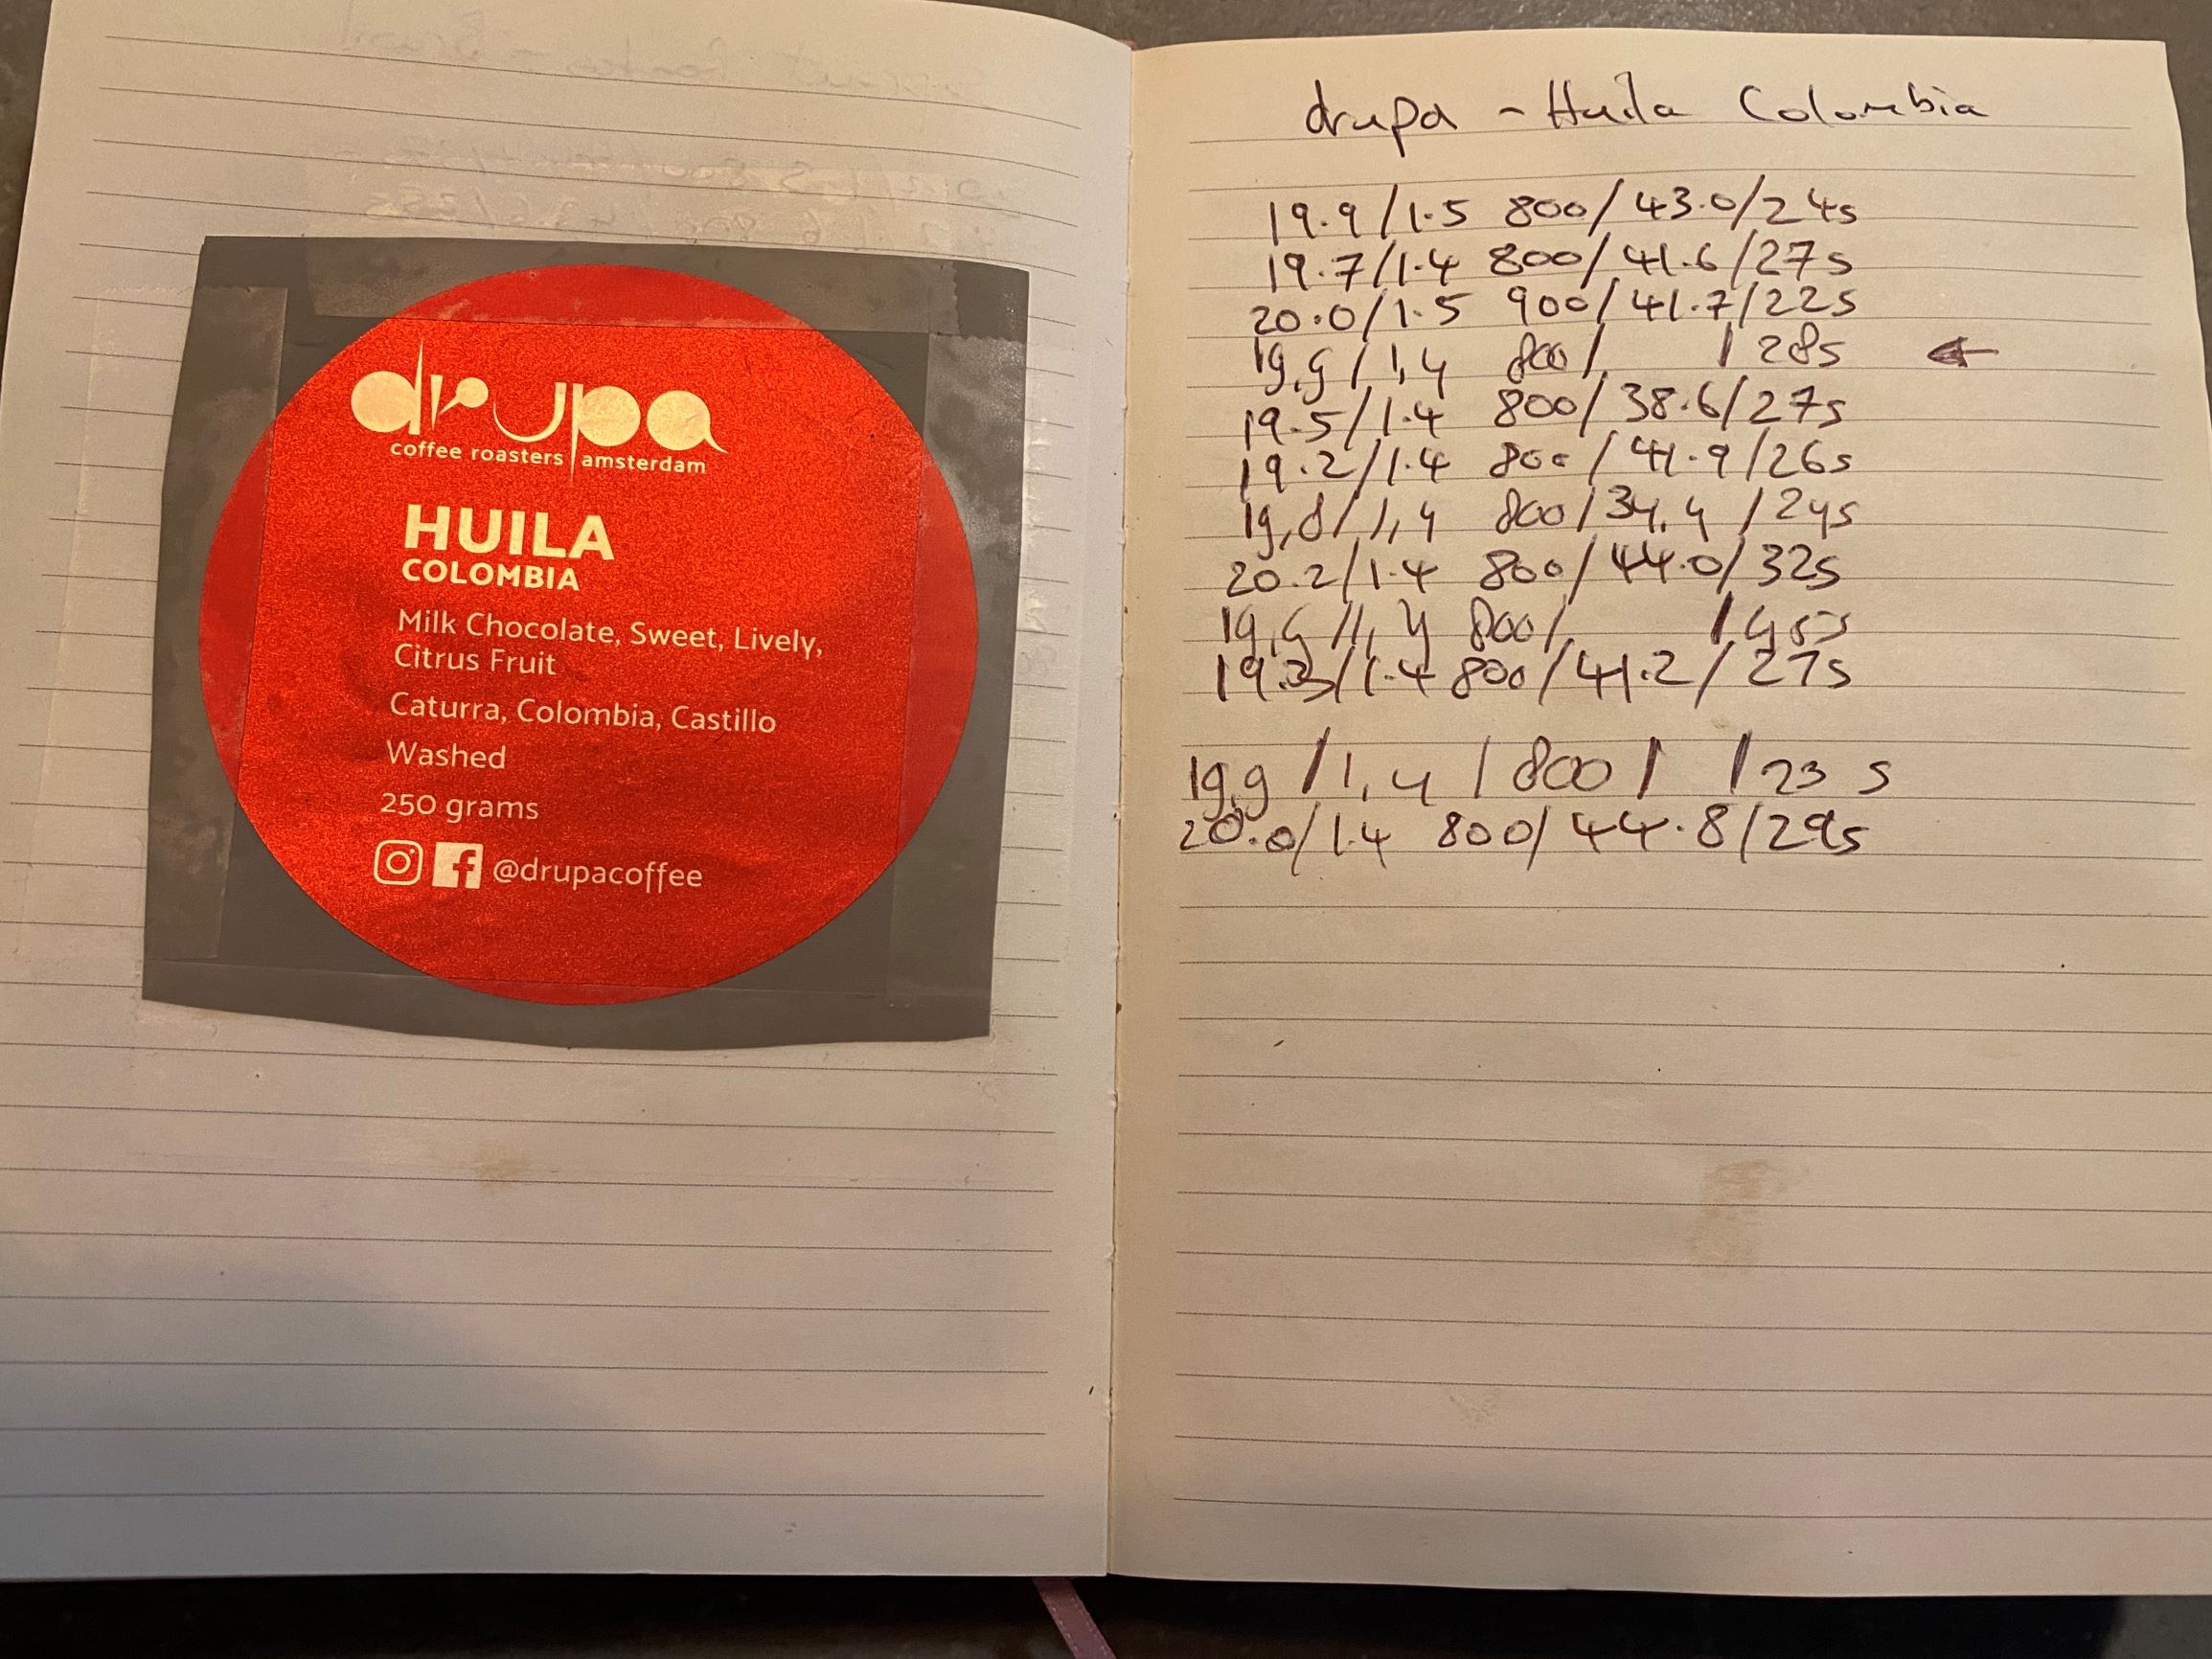 drupa
coffee roasters | amsterdam
HUILA
COLOMBIA
Milk Chocolate, Sweet, Lively,
Citrus Fruit
Caturra, Colombia, Castillo
Washed
250 grams
@drupacoffee
drupa - Huila Colombia
19.9/1.5 800/43.0/24s
19.7/1.4 800/41.6/27s
20.0/1.5 900/41.7/22s
19,9/1,4 800/ /28s ←
19.5/1.4 800/38.6/27s
19.2/1.4 800/41.9/26s
19,8/1,4 800/34,4/24s
20.2/1.4 800/44.0/32s
/1,4 800/
19.3/1.4 800/41.2/27s
19,9/1,4/800/ /23 s
20.0/1.4 800/44.8/29s